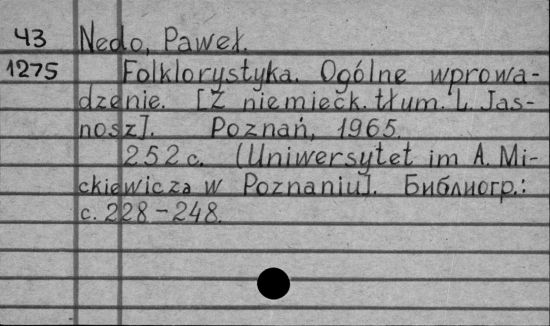 43 Nedo, Paweł.
1275 Folklorystyka. Ogólne wprowa-
dzenie. [Z niemieck. tłum. L. Jas-
nosz]. Poznań, 1965.
252 с. (Uniwersytet im A. Mi-
ckiewicza w Poznaniu]. Библиогр.:
с. 228-248.